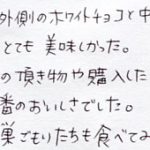 外側のホワイトチョコと中
とても 美味しかった。
の頂き物や購入した
番のおいしさでした。
巣ごもりたちも食べてみ